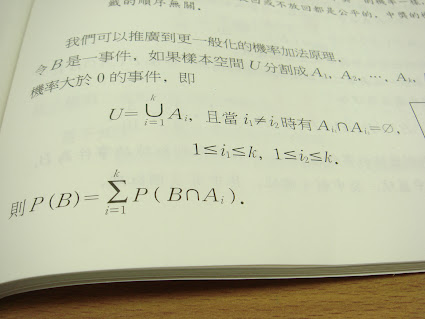 籤的順序無關.
我們可以推廣到更一般化的機率加法原理.
令 B 是一事件, 如果樣本空間 U 分割成 A₁, A₂, ⋯, A
機率大於 0 的事件, 即
U=⋃ᵢ₌₁ᵏ Aᵢ, 且當 i₁≠i₂ 時有 Aᵢ₁∩Aᵢ₂=∅,
1≤i₁≤k, 1≤i₂≤k,
則 P(B)=∑ᵢ₌₁ᵏ P(B∩Aᵢ).